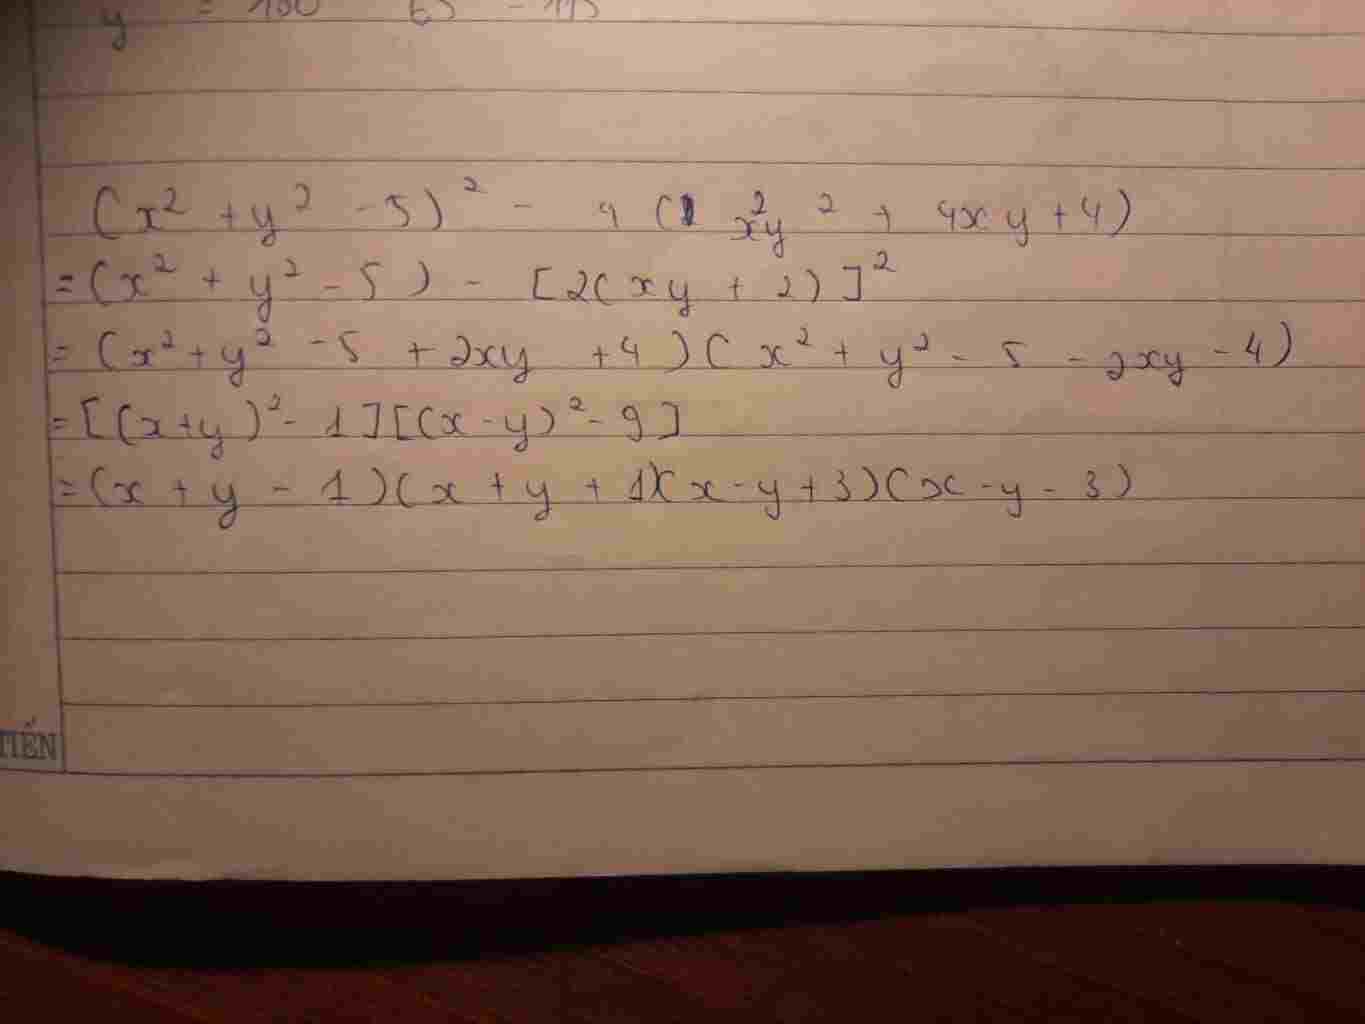 y = 180 - 65 = 115
(x² + y² - 5)² - 4 (x²y² + 4xy + 4)
= (x² + y² - 5) - [2(xy + 2)]²
= (x² + y² - 5 + 2xy + 4)(x² + y² - 5 - 2xy - 4)
= [(x+y)² - 1][(x-y)² - 9]
= (x + y - 1)(x + y + 1)(x - y + 3)(x - y - 3)
TIẾN